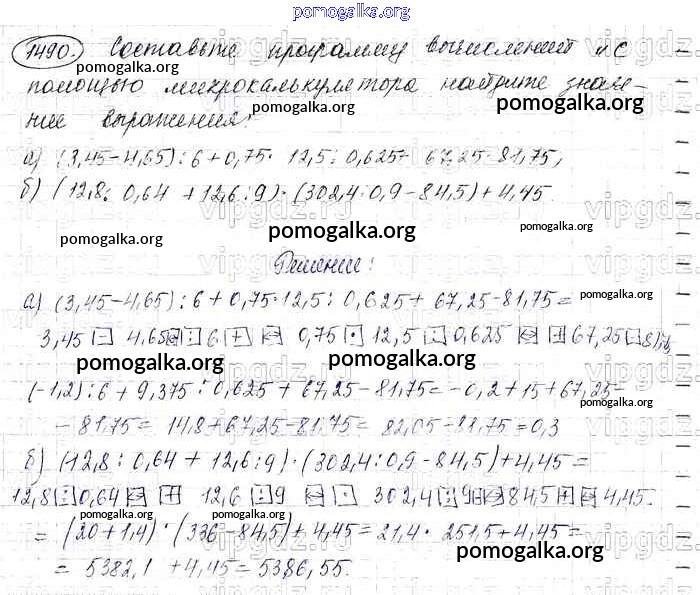 pomogalka.org
1490. Составьте программу вычислений и с
помощью микрокалькулятора найдите значе-
ние выражения:
а) (3,45-4,65):6+0,75·12,5:0,625+67,25-81,75;
б) (12,8:0,64+12,6:9)·(302,4:0,9-84,5)+4,45.
Решение:
а) (3,45-4,65):6+0,75·12,5:0,625+67,25-81,75=
3,45 - 4,65 : 6 + 0,75 · 12,5 : 0,625 + 67,25 - 81,75
(-1,2):6+9,375:0,625+67,25-81,75=-0,2+15+67,25-
-81,75=14,8+67,25-81,75=82,05-81,75=0,3
б) (12,8:0,64+12,6:9)·(302,4:0,9-84,5)+4,45=
12,8 : 0,64 + 12,6 : 9 302,4 : 9 84,5 + 4,45.
=(20+1,4)·(336-84,5)+4,45=21,4·251,5+4,45=
=5382,1+4,45=5386,55.